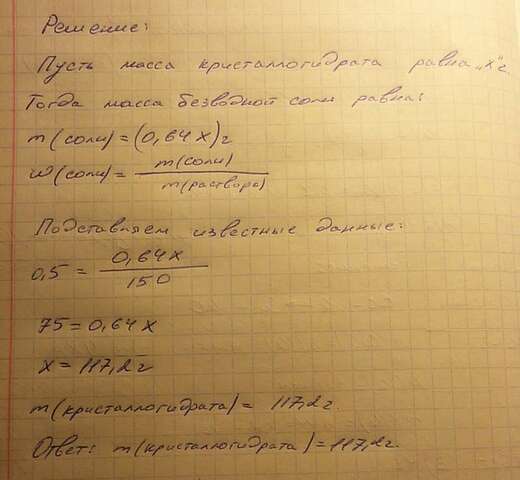 Решение:
Пусть масса кристаллогидрата равна „х" г.
Тогда масса безводной соли равна:
m(соли) = (0,64х) г
w(соли) = m(соли) / m(раствора)
Подставляем известные данные:
0,5 = 0,64х / 150
75 = 0,64х
х = 117,2 г
m(кристаллогидрата) = 117,2 г.
Ответ: m(кристаллогидрата) = 117,2 г.